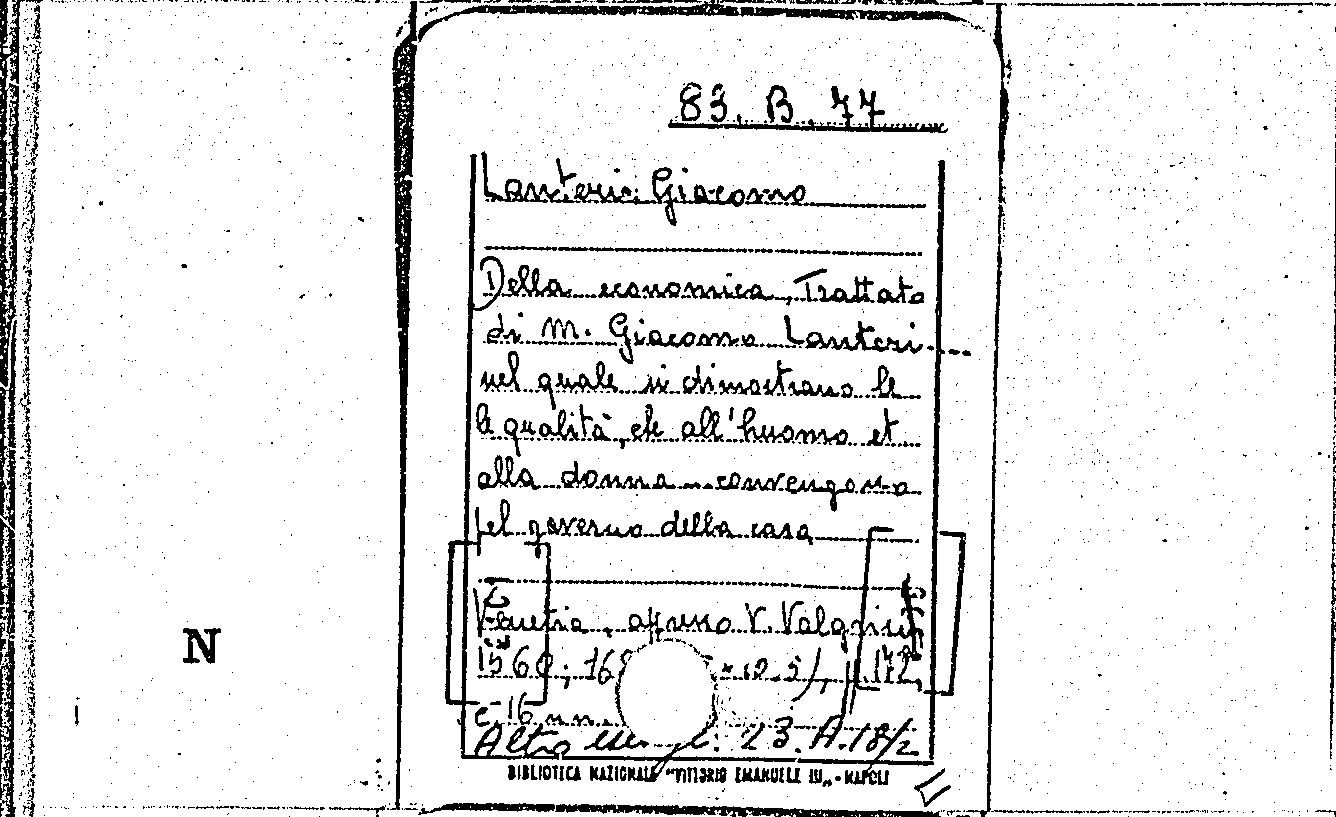 83. B. 77
Lanteri Giacomo
Della economica, Trattato
di M. Giacomo Lanteri
nel quale si dimostrano le
le qualità, che all'huomo et
alla donna convengono
pel governo della casa
Venetia, appresso V. Valgrisi
1560; 172
c. 16 n.n.
Altro 23. A. 18/2
BIBLIOTECA NAZIONALE "VITTORIO EMANUELE III" - NAPOLI
N